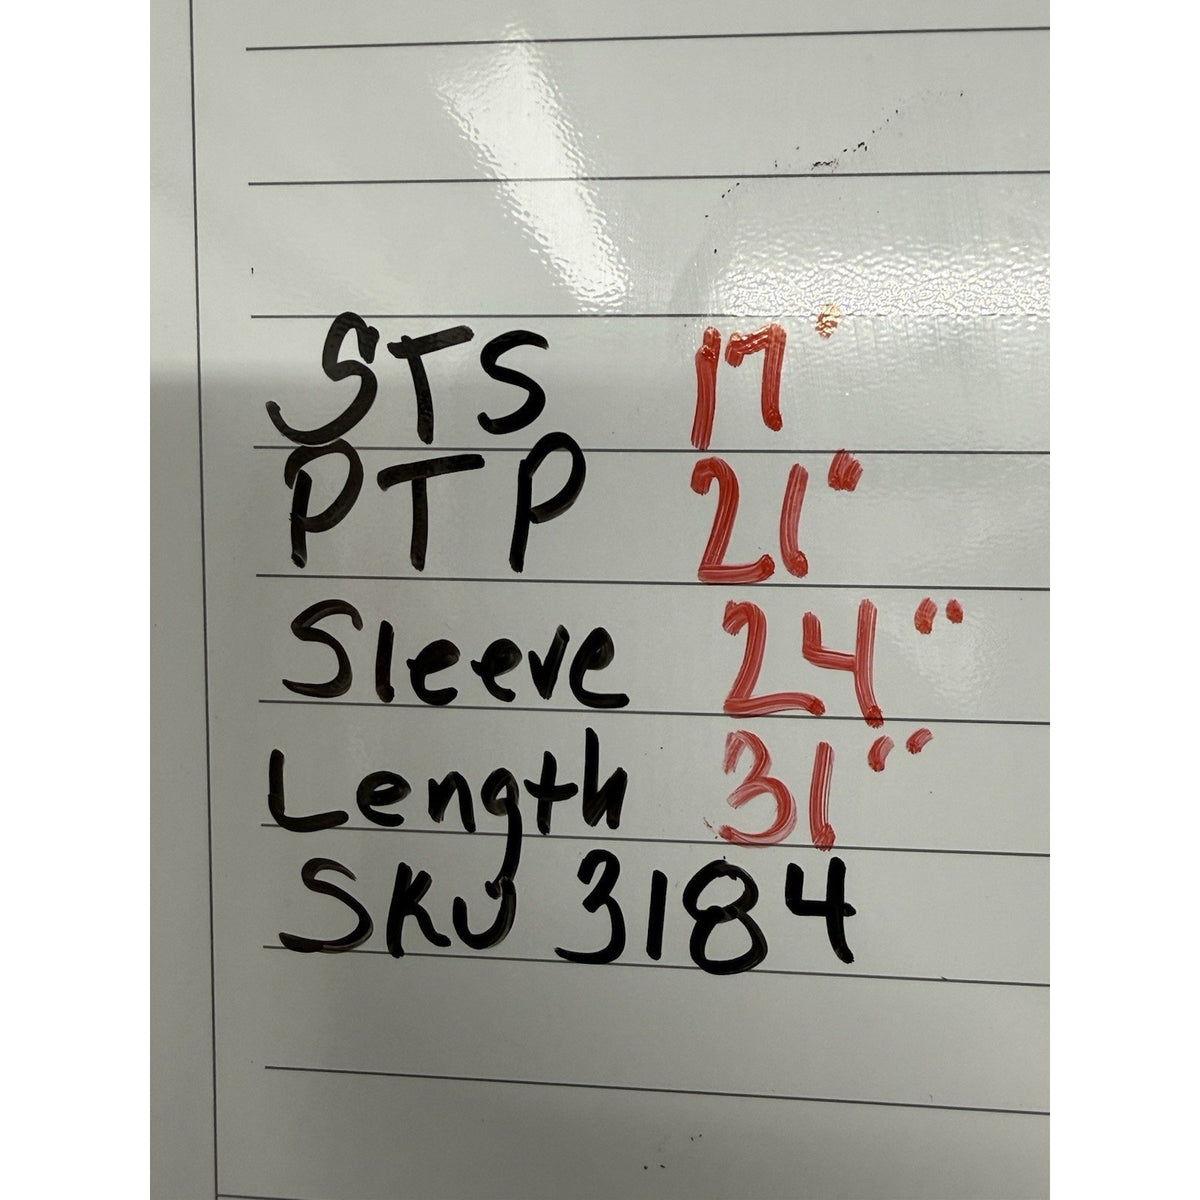 STS 17'
PTP 21"
Sleeve 24"
Length 31"
SKU 3184